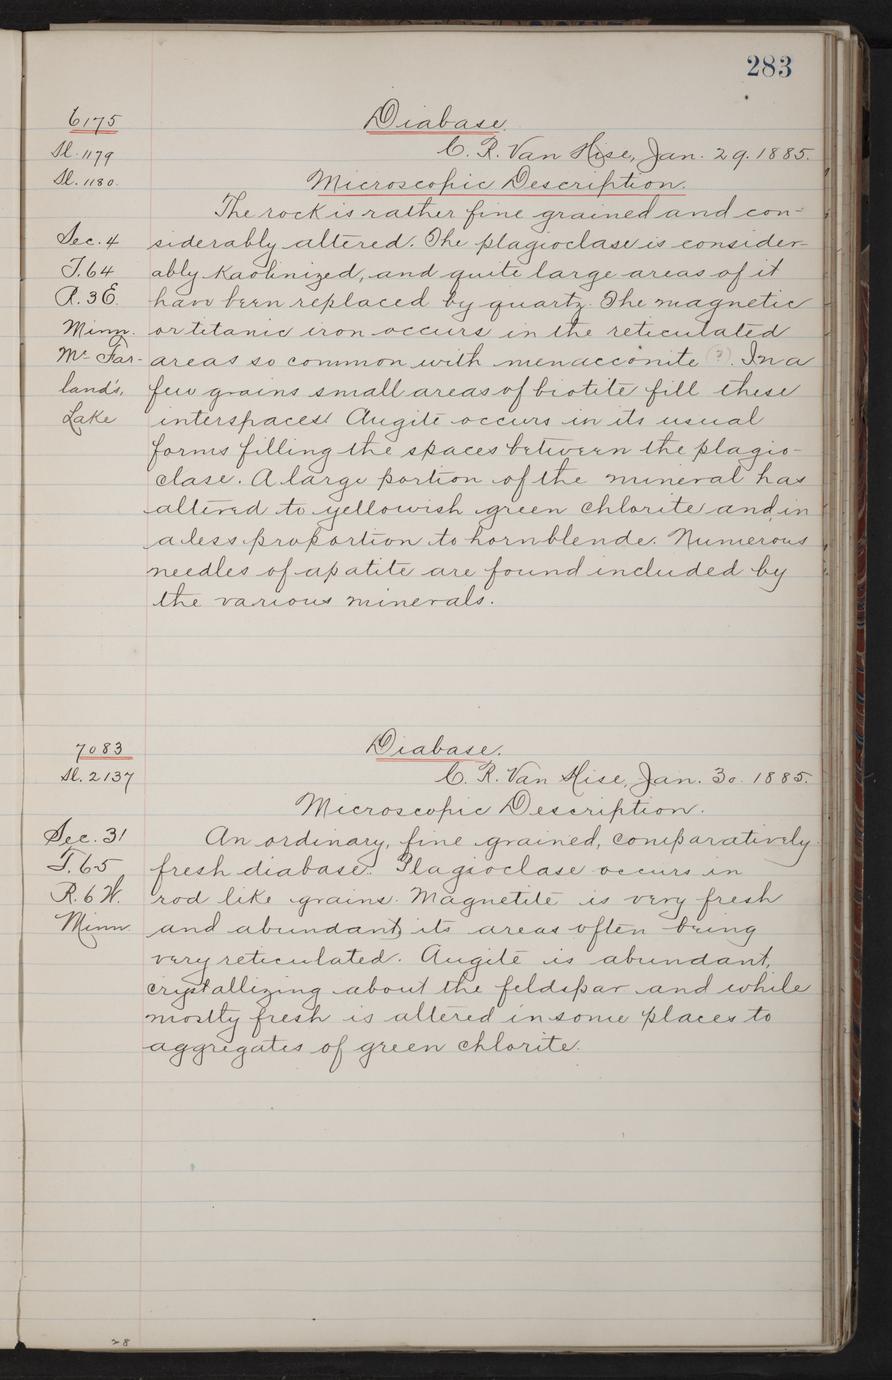 283
6175 Diabase.
Sl. 1179 C. R. Van Hise, Jan. 29. 1885.
Sl. 1180. Microscopic Description.
The rock is rather fine grained and con-
Sec. 4 siderably altered. The plagioclase is consider-
T. 64 ably kaolinized, and quite large areas of it
R. 3 E. have been replaced by quartz. The magnetic
Minn. or titanic iron occurs in the reticulated
Mc Far- areas so common with menacconite (?). In a
land's, few grains small areas of biotite fill these
Lake interspaces. Augite occurs in its usual
forms filling the spaces between the plagio-
clase. A large portion of the mineral has
altered to yellowish green chlorite and in
a less proportion to hornblende. Numerous
needles of apatite are found included by
the various minerals.
7083 Diabase.
Sl. 2137 C. R. Van Hise, Jan. 30. 1885.
Microscopic Description.
Sec. 31 An ordinary, fine grained, comparatively
T. 65 fresh diabase. Plagioclase occurs in
R. 6 W. rod like grains. Magnetite is very fresh
Minn. and abundant, its areas often being
very reticulated. Augite is abundant,
crystallizing about the feldspar and while
mostly fresh is altered in some places to
aggregates of green chlorite.
28